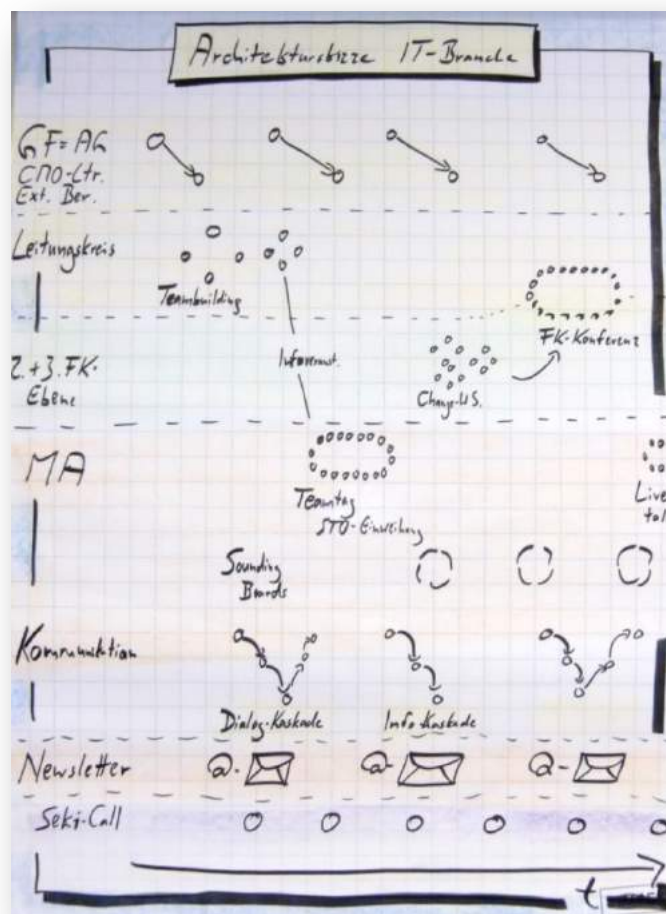 Architekturskizze IT-Branche
GF=AG
CMO-Ltr.
Ext. Ber.
Leitungskreis
Teambuilding
FK-Konferenz
2.+3. FK-
Ebene
Infoveranst.
Change-WS.
MA
Teamtag
STO-Einweihung
Live
tal
Sounding
Boards
Kommunikation
Dialog-Kaskade
Info-Kaskade
Newsletter
@-
@-
@-
Seki-Call
t